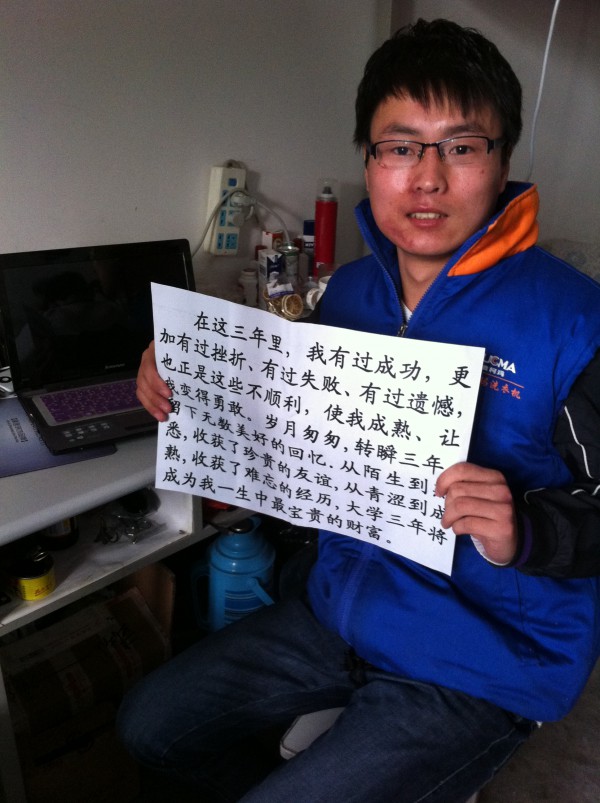 在这三年里，我有过成功，更
加有过挫折、有过失败、有过遗憾，
也正是这些不顺利，使我成熟、让
我变得勇敢。岁月匆匆，转瞬三年，
留下无数美好的回忆.从陌生到
悉，收获了珍贵的友谊.从青涩到成
熟，收获了难忘的经历，大学三年将
成为我一生中最宝贵的财富。
洗衣机